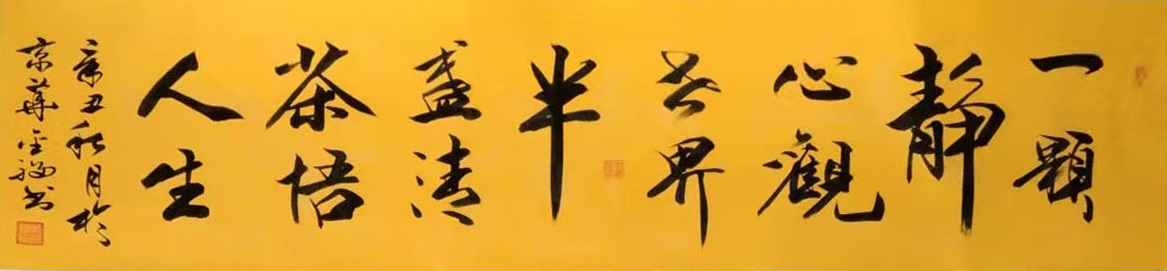 一顆
靜
心觀
世界
半
盞清
茶悟
人生
辛丑秋月於
京華金福書